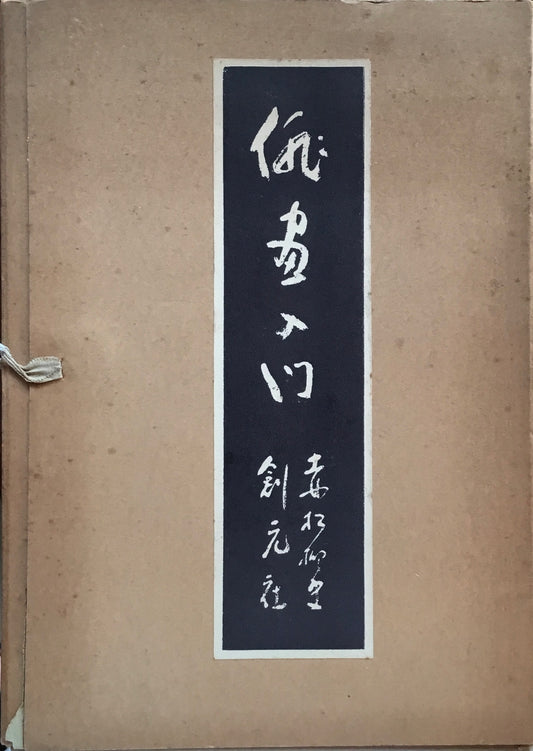 俳画入门
赤松柳史
創元社